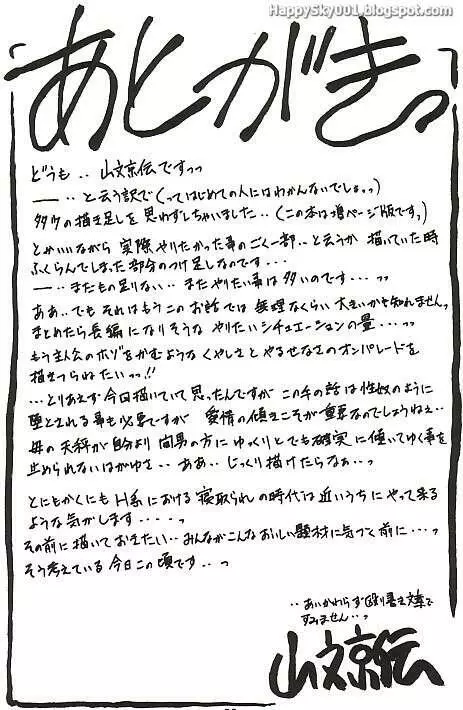 HappySky001.blogspot.com
あとがきっ
どうも‥山文京伝ですっっ
――‥と云う訳で(ってはじめての人にはわかんないでしょっっ)
多少の描き足しを思わずしちゃいました‥(この本は増ページ版ですっ)
とかいいながら 実際やりたかった事のごく一部‥と云うか 描いていた時
ふくらんでしまった部分のつけ足しなのです・・・
――‥まだもの足りない‥まだやりたい事は多いのです・・・っっ
ああ‥でも それはもうこのお話では 無理なくらい 大きいかも知れませんっ
まとめたら長編になりそうな やりたいシチュエーションの量・・・・っっ
もう主人公のホゾをかむような くやしさと やるせなさのオンパレードを
描きつらねたいっっ!!
・・・とりあえず今回描いていて 思ったんですが この手の話は性奴のように
堕とされる事も必要ですが 愛情の傾きこそが重要なのでしょうねぇ‥
母の天秤が自分より 間男の方に ゆっくりとでも確実に傾いてゆく事を
止められないはがゆさ‥ああ‥じっくり描けたらなぁ・・っ
とにもかくにも H系における 寝取られの時代は 近いうちに やって来る
ような気がします・・・・っ
その前に描いておきたい‥みんながこんなおいしい題材に気づく前に・・・っ
そう考えている 今日この頃です‥っ
‥あいかわらず殴り書き文章で
すみません‥っ
山文京伝